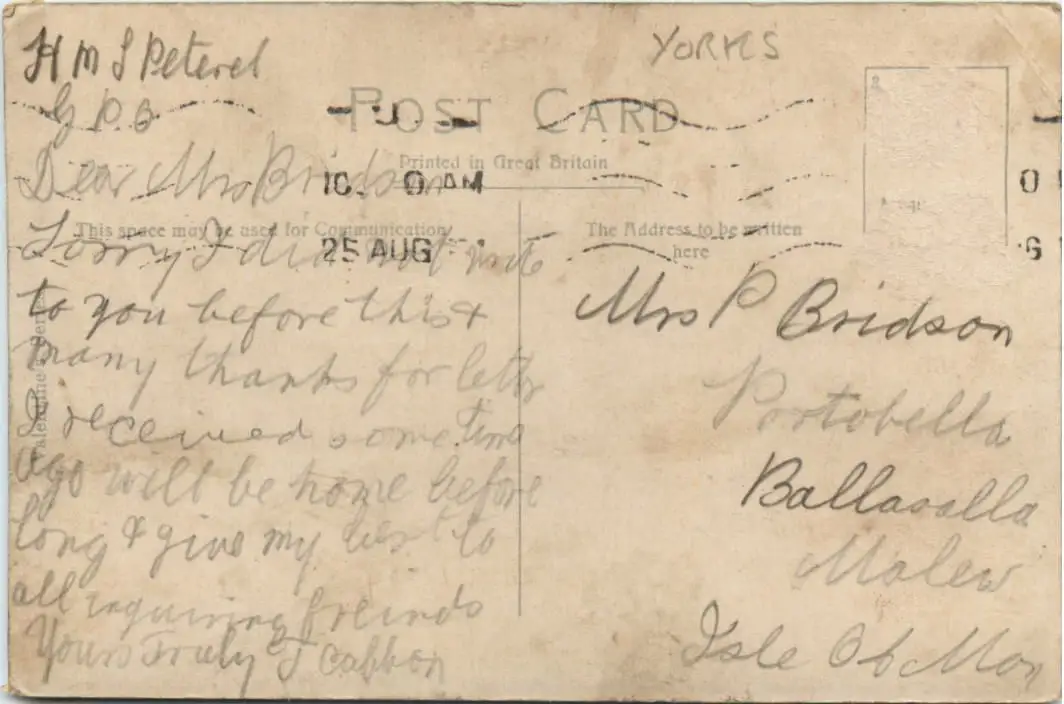 H M S Peterel
G P O
Dear Mrs Bridson
Sorry I did not write
to you before this &
many thanks for letter
I received some time
ago will be home before
long & give my best to
all inquiring freinds
Yours Truly J
YORKS
POST CARD
Printed in Great Britain
This space may be used for Communication
The Address to be written
here
10. 0 AM
25 AUG
Mrs P Bridson
Portobella
Ballasalla
Malew
Isle Of Man